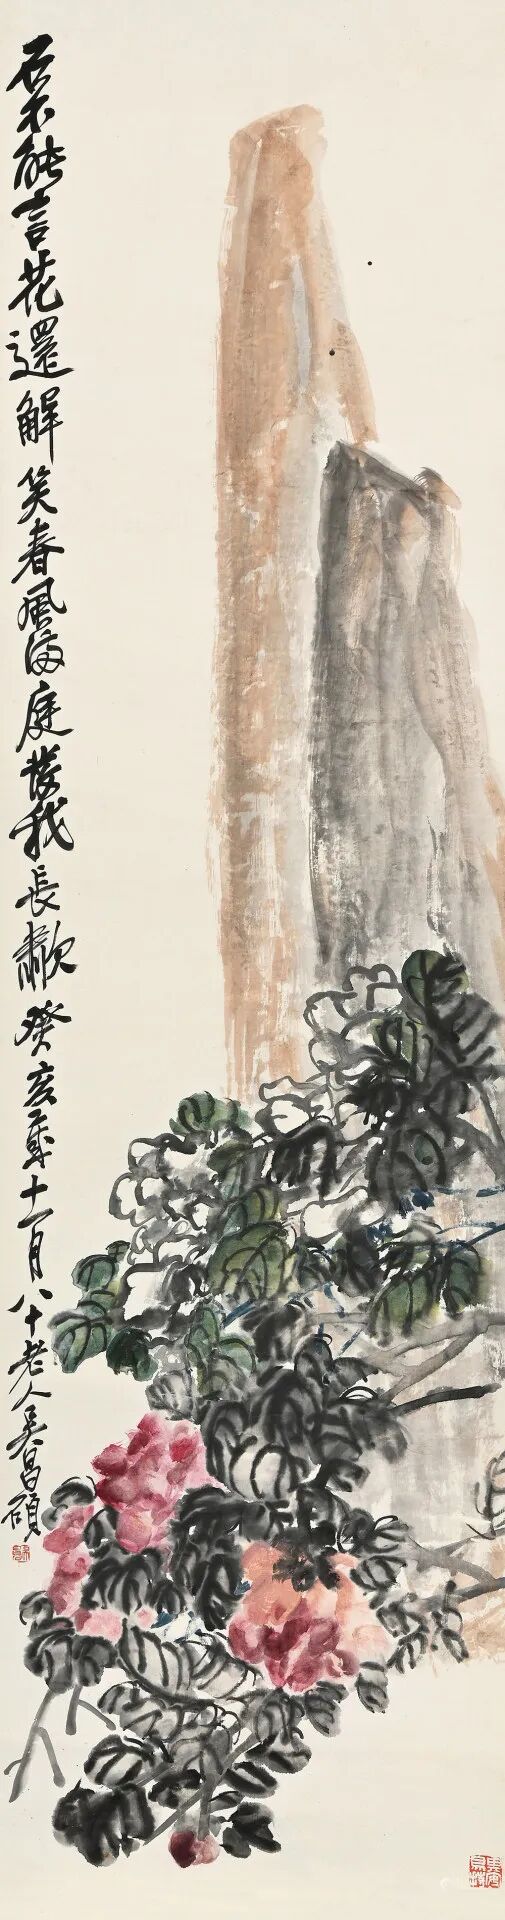 石不能言花還解笑春風滿庭發我長歗癸亥年十一月八十老人吳昌碩